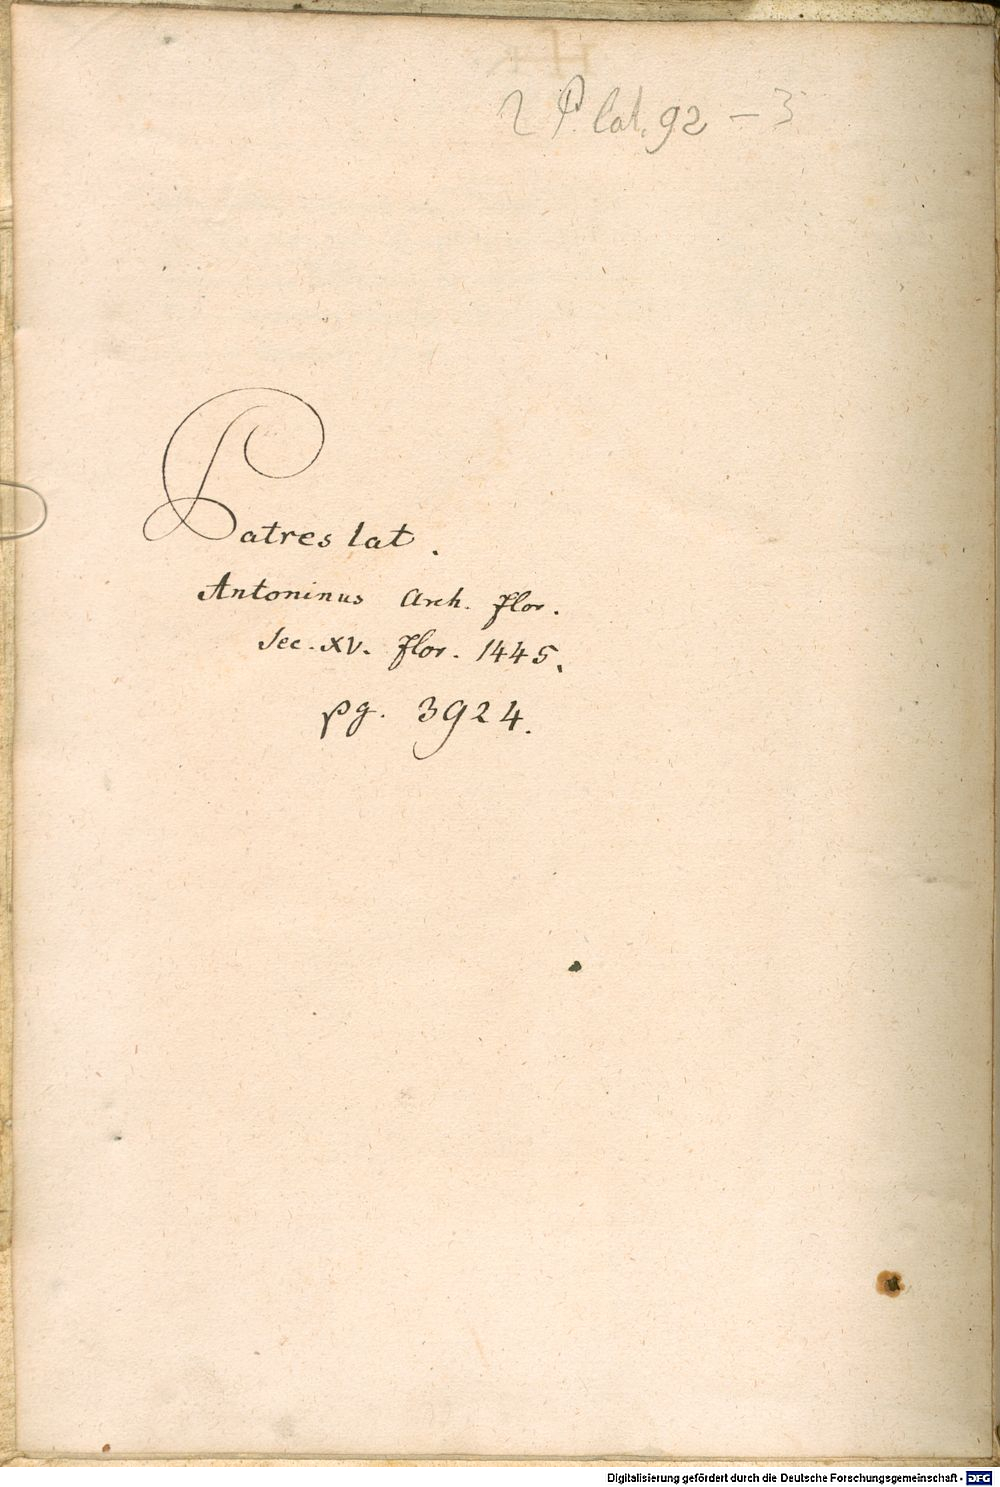 2 P. lat. 92 – 3
Patres lat.
Antoninus Arch. Flor.
Sec. XV. Flor. 1445.
pg. 3924.
Digitalisierung gefördert durch die Deutsche Forschungsgemeinschaft - DFG